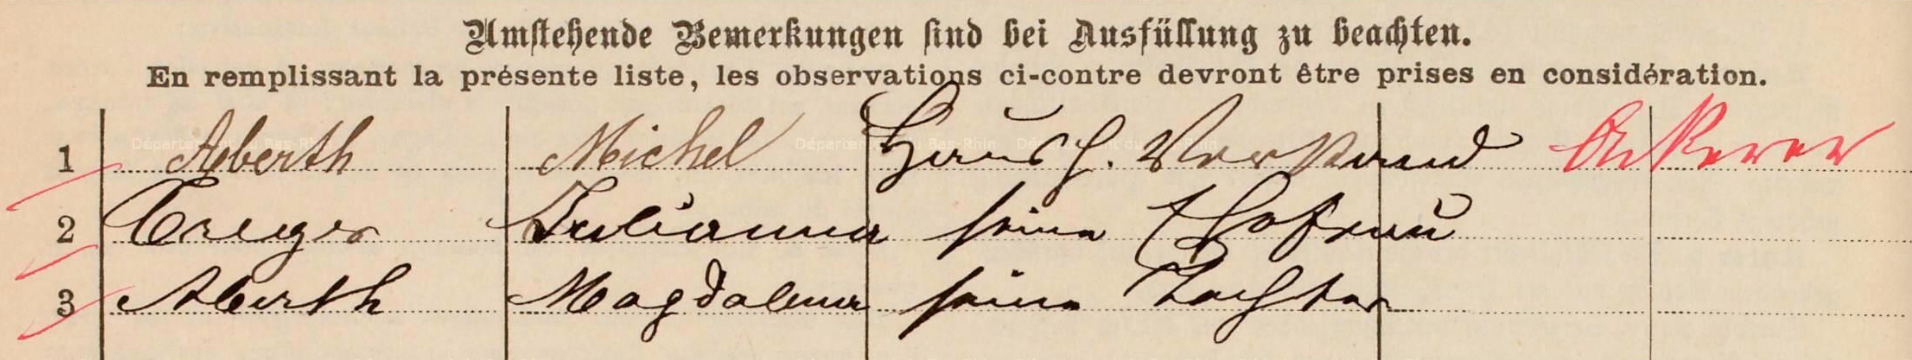 Umstehende Bemerkungen sind bei Ausfüllung zu beachten.
En remplissant la présente liste, les observations ci-contre devront être prises en considération.
1 Aberth Michel Haush. Vorstand Ackerer
2 Creger Julianna seine Ehefrau
3 Aberth Magdalena seine Tochter